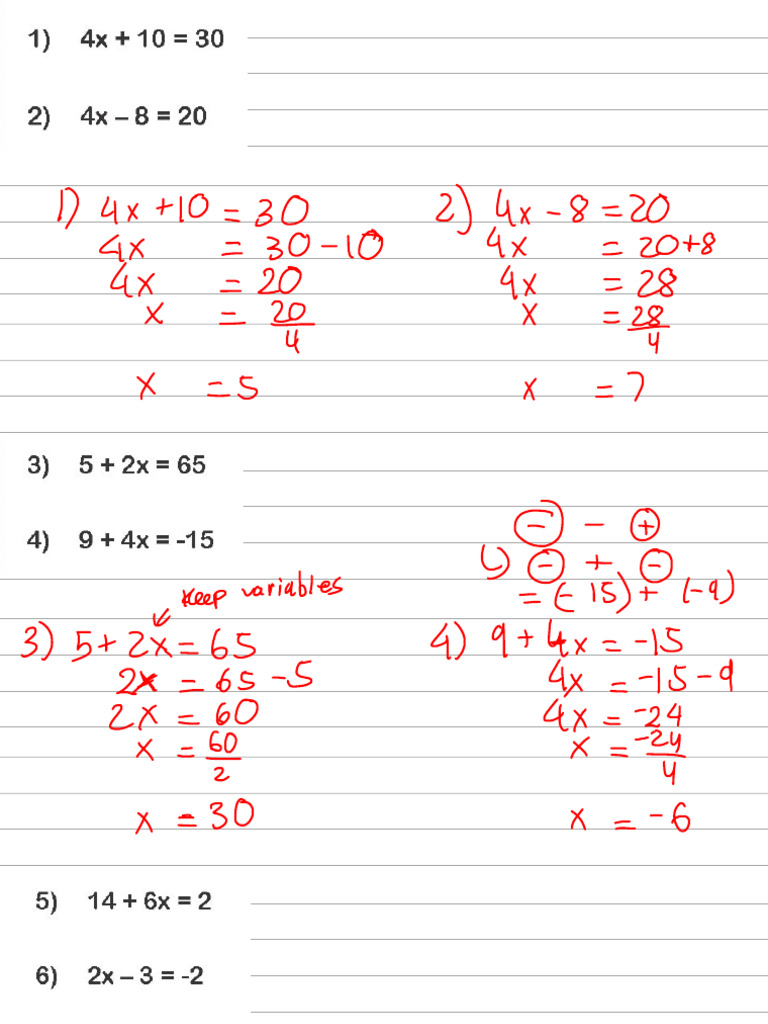 1) 4x + 10 = 30
2) 4x – 8 = 20
1) 4x + 10 = 30
4x = 30 - 10
4x = 20
x = 20/4
x = 5
2) 4x - 8 = 20
4x = 20 + 8
4x = 28
x = 28/4
x = 7
3) 5 + 2x = 65
4) 9 + 4x = -15
⊖ - ⊕
↳ ⊖ + ⊖
= (-15) + (-9)
keep variables
3) 5 + 2x = 65
2x = 65 - 5
2x = 60
x = 60/2
x = 30
4) 9 + 4x = -15
4x = -15 - 9
4x = -24
x = -24/4
x = -6
5) 14 + 6x = 2
6) 2x – 3 = -2